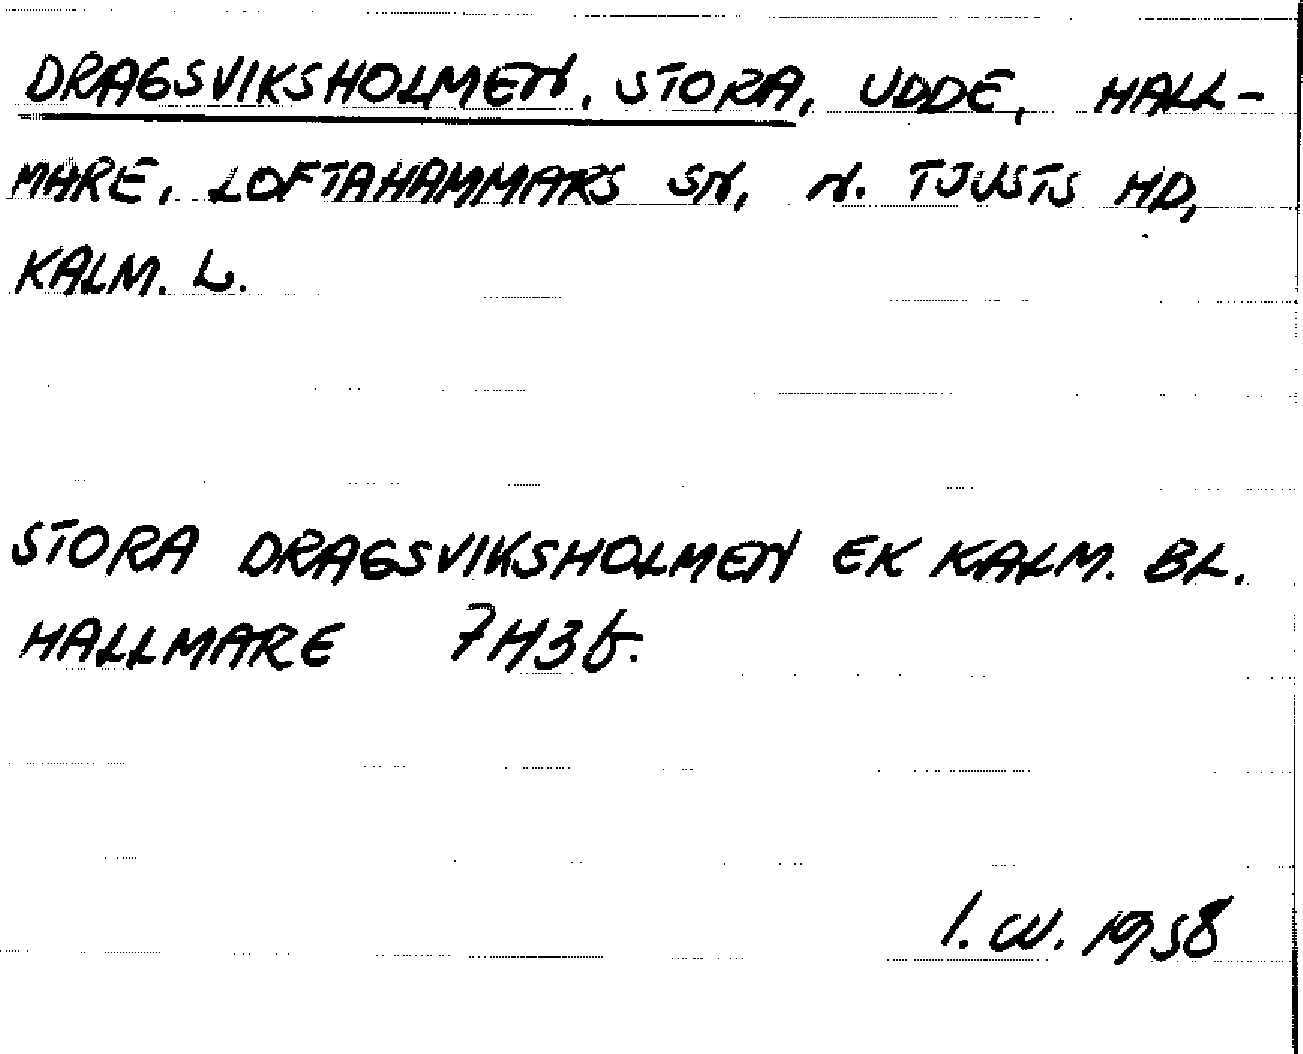 DRAGSVIKSHOLMEN, STORA, UDDE, HALL-
MARE, LOFTAHAMMARS SN, N. TJUSTS HD,
KALM. L.
STORA DRAGSVIKSHOLMEN EK KALM. BL.
HALLMARE 7H3f.
I. W. 1958